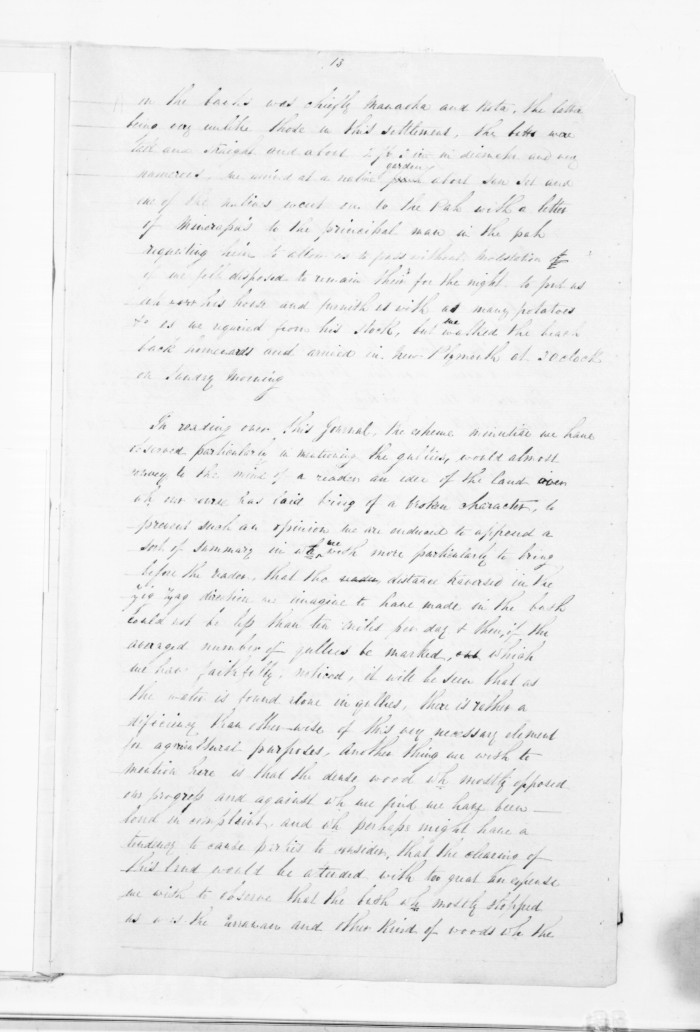 13
in the bush was chiefly Manaoka and Rata, the latter
being very unlike those in this settlement. The were
tall and straight and about 2 ft 2 in in diameter and very
numerous. We arrived at a native garden about sun set and
one of the natives went on to the Pah with a letter
of to the principal man in the pah
requesting him to allow us to pass without molestation &
if we felt disposed to remain their for the night to put us
into his house and furnish us with as many potatoes
&c as we required from his stock, but we walked the beach
back homewards and arrived in New Plymouth at 2 oclock
on Sunday Morning
In reading over this Journal, the extreme minutiae we have
observed particularly in mentioning the gullies, would almost
convey to the mind of a reader an idea of the land over
wh our has laid being of a broken character, to
prevent such an opinion we are induced to append a
sort of summary in wh we wish more particularly to bring
before the reader, that the distance traversed in the
Zig Zag direction we imagine to have made in the bush
could not be less than ten miles per day & then, if the
averaged number of gullies be marked, which
we have faithfully noticed, it will be seen that as
the water is found alone in gullies, there is rather a
dificiency than other-wise of this very necessary element
for agricultural purposes. Another thing we wish to
mention here is that the dense wood wh mostly opposed
our progress and against wh we find we have been
loud in complaint, and wh perhaps might have a
tendency to cause parties to consider, that the clearing of
this land would be attended with too great an expense
we wish to observe that the bush wh mostly stopped
us was the and other kind of woods wh the